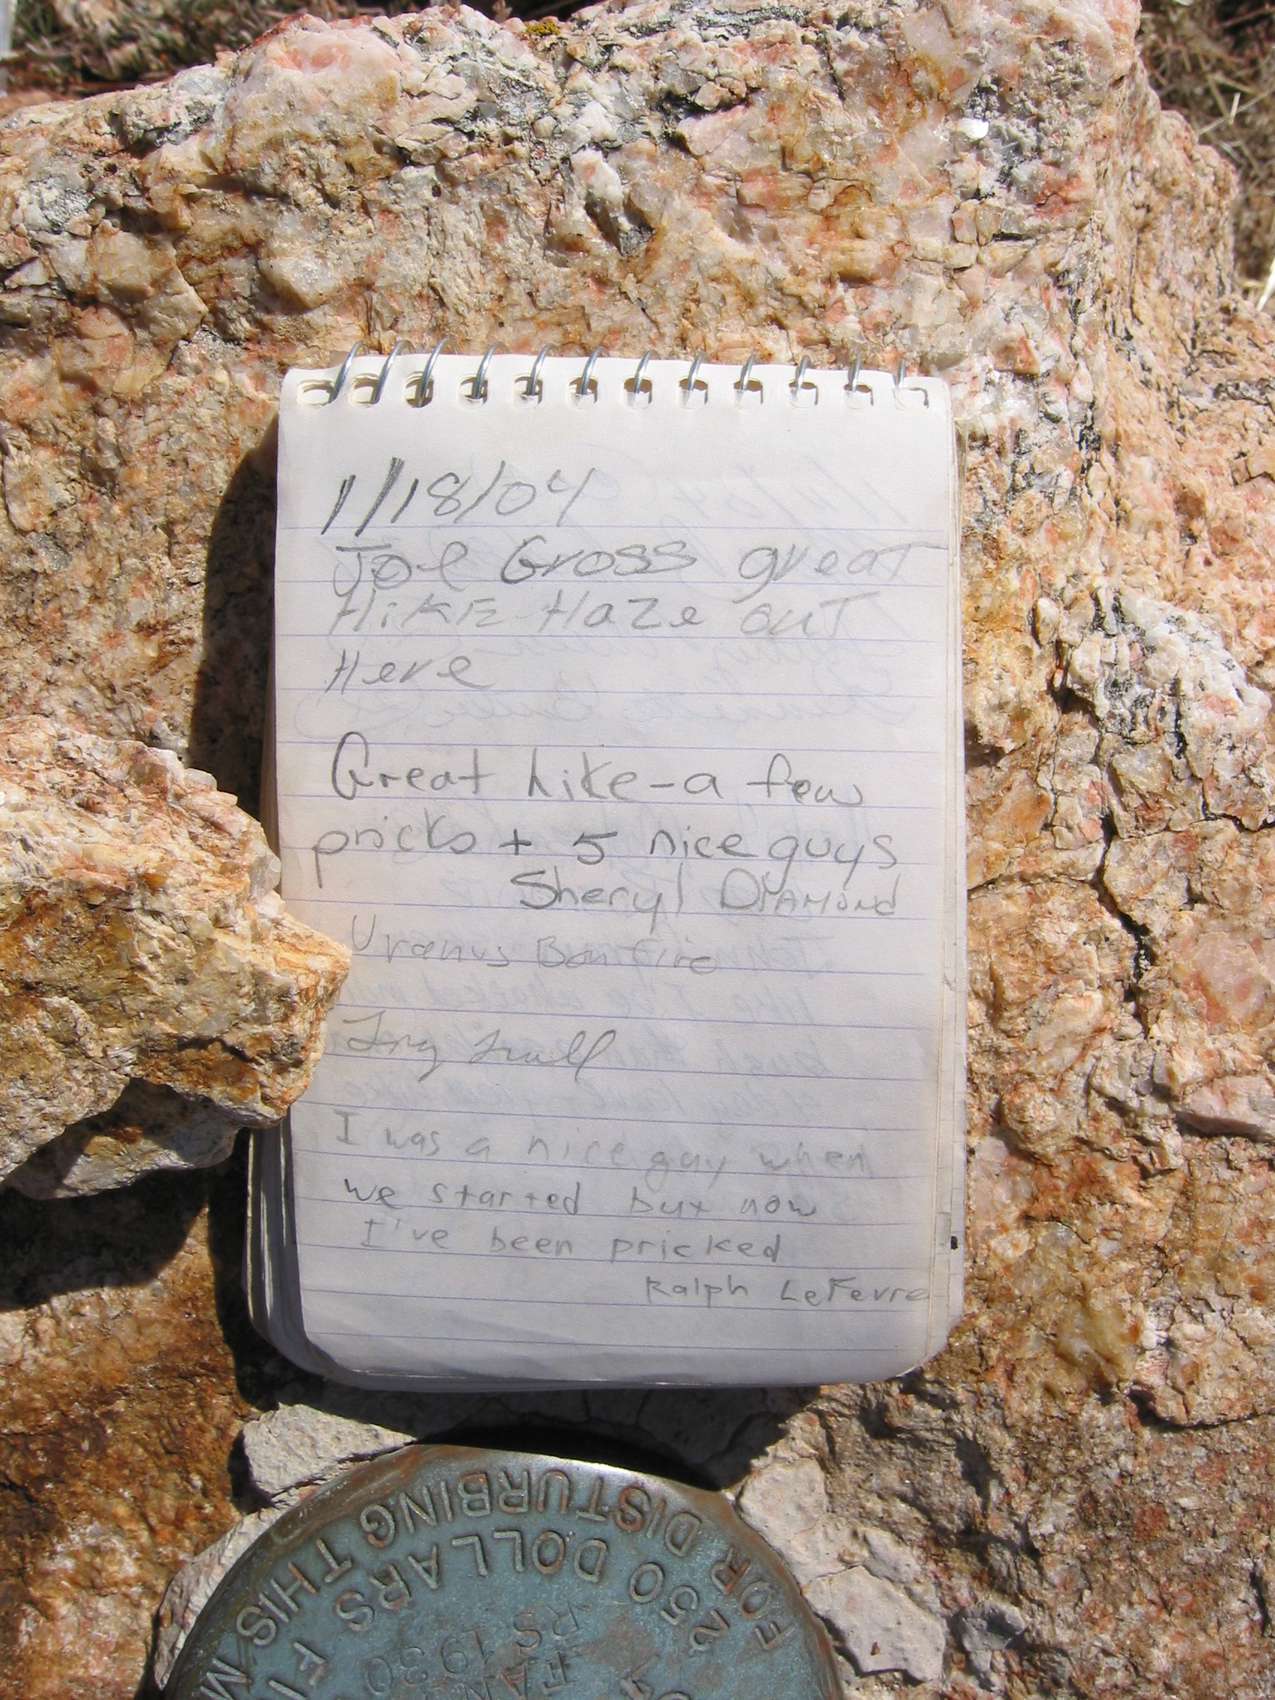 1/18/04
Joe Gross great
HiKE Haze out
Here
Great hike-a few
pricks + 5 nice guys
Sheryl DIAMOND
Uranus Bonfire
I was a nice guy when
we started but now
I've been pricked
Ralph LeFevre
FOR DISTURBING THIS M
250 DOLLARS FI
RS 1930